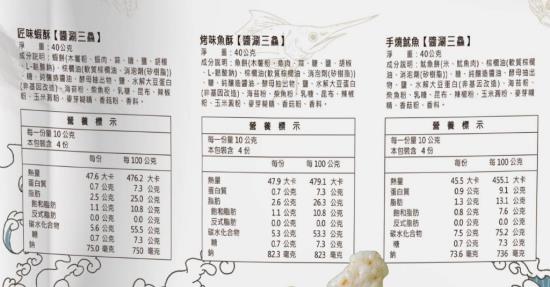 匠味蝦酥【醬涮三鱻】
淨　重：40公克
成分說明：蝦餅(木薯粉、蝦肉、蒜、糖、鹽、胡椒
、L-麩酸鈉)、棕櫚油(軟質棕櫚油、消泡劑(矽樹脂))
、糖、純釀造醬油、酵母抽出物、鹽、水解大豆蛋白
(非基因改造)、海苔粉、柴魚粉、乳糖、昆布、辣椒
粉、玉米澱粉、麥芽糊精、香菇粉、香料。
營養標示
每一份量 10 公克
本包裝含 4 份
每份 每 100 公克
熱量 47.6 大卡 476.2 大卡
蛋白質 0.7 公克 7.3 公克
脂肪 2.5 公克 25.0 公克
飽和脂肪 1.1 公克 10.8 公克
反式脂肪 0.0 公克 0.0 公克
碳水化合物 5.6 公克 55.5 公克
糖 0.7 公克 7.3 公克
鈉 75.0 毫克 750 毫克
烤味魚酥【醬涮三鱻】
淨　重：40公克
成分說明：魚餅(木薯粉、魚肉、蒜、糖、鹽、胡椒
、L-麩酸鈉)、棕櫚油(軟質棕櫚油、消泡劑(矽樹脂))
、糖、純釀造醬油、酵母抽出物、鹽、水解大豆蛋白
(非基因改造)、海苔粉、柴魚粉、乳糖、昆布、辣椒
粉、玉米澱粉、麥芽糊精、香菇粉、香料。
營養標示
每一份量 10 公克
本包裝含 4 份
每份 每 100 公克
熱量 47.9 大卡 479.1 大卡
蛋白質 0.7 公克 7.3 公克
脂肪 2.6 公克 26.3 公克
飽和脂肪 1.1 公克 10.8 公克
反式脂肪 0.0 公克 0.0 公克
碳水化合物 5.3 公克 53.3 公克
糖 0.7 公克 7.3 公克
鈉 82.3 毫克 823 毫克
手燒魷魚【醬涮三鱻】
淨　重：40公克
成分說明：魷魚餅(米、魷魚肉)、棕櫚油(軟質棕櫚
油、消泡劑(矽樹脂))、糖、純釀造醬油、酵母抽出
物、鹽、水解大豆蛋白(非基因改造)、海苔粉、
柴魚粉、乳糖、昆布、辣椒粉、玉米澱粉、麥芽糊
精、香菇粉、香料。
營養標示
每一份量 10 公克
本包裝含 4 份
每份 每 100 公克
熱量 45.5 大卡 455.1 大卡
蛋白質 0.9 公克 9.1 公克
脂肪 1.3 公克 13.1 公克
飽和脂肪 0.8 公克 7.6 公克
反式脂肪 0.0 公克 0.0 公克
碳水化合物 7.5 公克 75.2 公克
糖 0.7 公克 7.3 公克
鈉 73.6 毫克 736 毫克